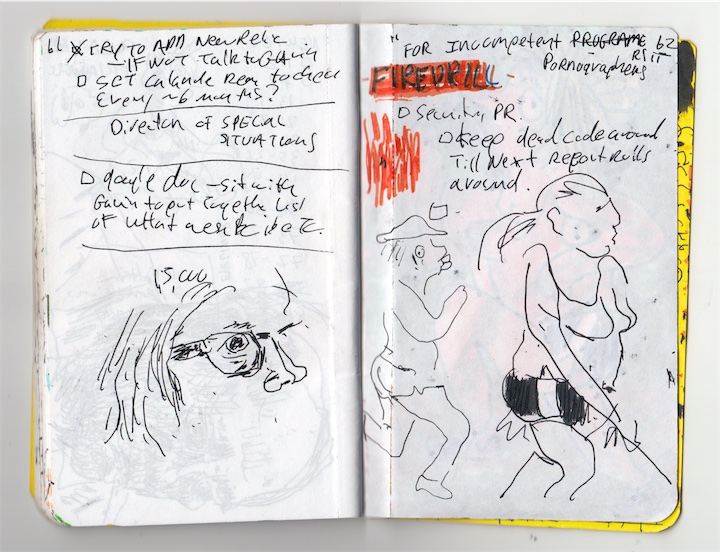 61
TRY TO ADD New Relic
— IF NOT Talk to Gavin
SET Calendar Rem to check
Every ~6 months?
Director of SPECIAL
SITUATIONS
google doc — sit with
Gavin to put together list
of what
15,000
62
FOR Incompetent PROGRAME
Pornographers
FIREDRILL
Security PR.
Keep dead code around
Till Next Report Rolls
around.